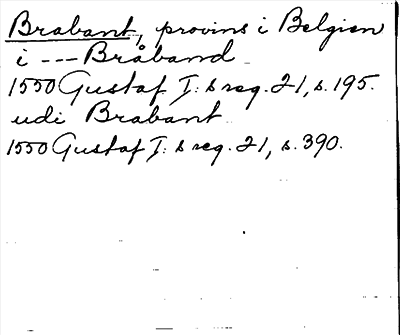 Brabant, provins i Belgien
i --- Bråband
1550 Gustaf I:s reg. 21, s. 195.
udi Brabant
1550 Gustaf I:s reg. 21, s. 390.